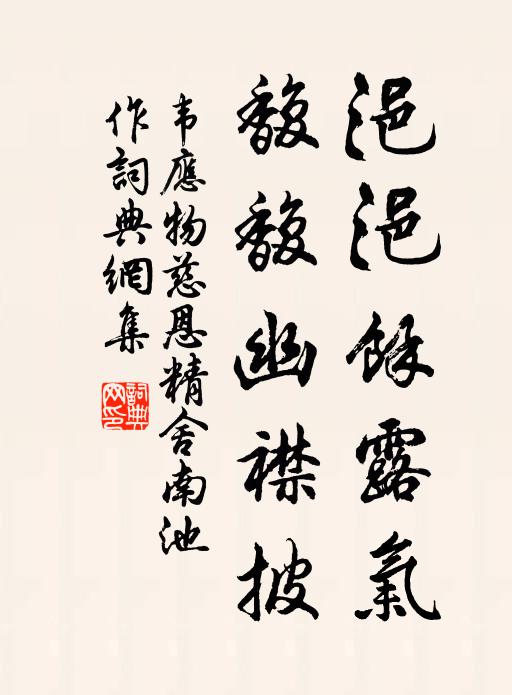 浥浥餘露氣
馥馥幽襟披
韦應物慈恩精舍南池
作詞典網集
詞典网印